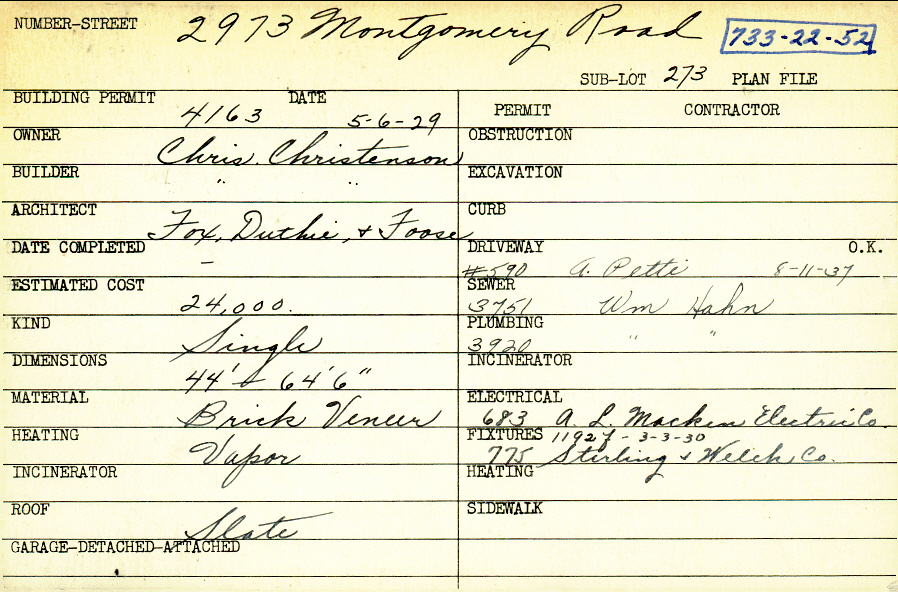 NUMBER-STREET 2973 Montgomery Road 733-22-52
SUB-LOT 273 PLAN FILE
BUILDING PERMIT 4163 DATE 5-6-29
PERMIT CONTRACTOR
OWNER Chris. Christenson
OBSTRUCTION
BUILDER " "
EXCAVATION
ARCHITECT Fox, Duthie, & Foose
CURB
DATE COMPLETED –
DRIVEWAY O.K.
#590 A. Petti 8-11-37
ESTIMATED COST 24,000.
SEWER
3751 Wm Hahn
KIND Single
PLUMBING
3920 " "
DIMENSIONS 44' & 64'6"
INCINERATOR
MATERIAL Brick Veneer
ELECTRICAL
683 A. L. Macken Electric Co.
HEATING Vapor
FIXTURES 11927 - 3-3-30
775 Sterling & Welch, Co.
INCINERATOR
HEATING
ROOF Slate
SIDEWALK
GARAGE-DETACHED-ATTACHED